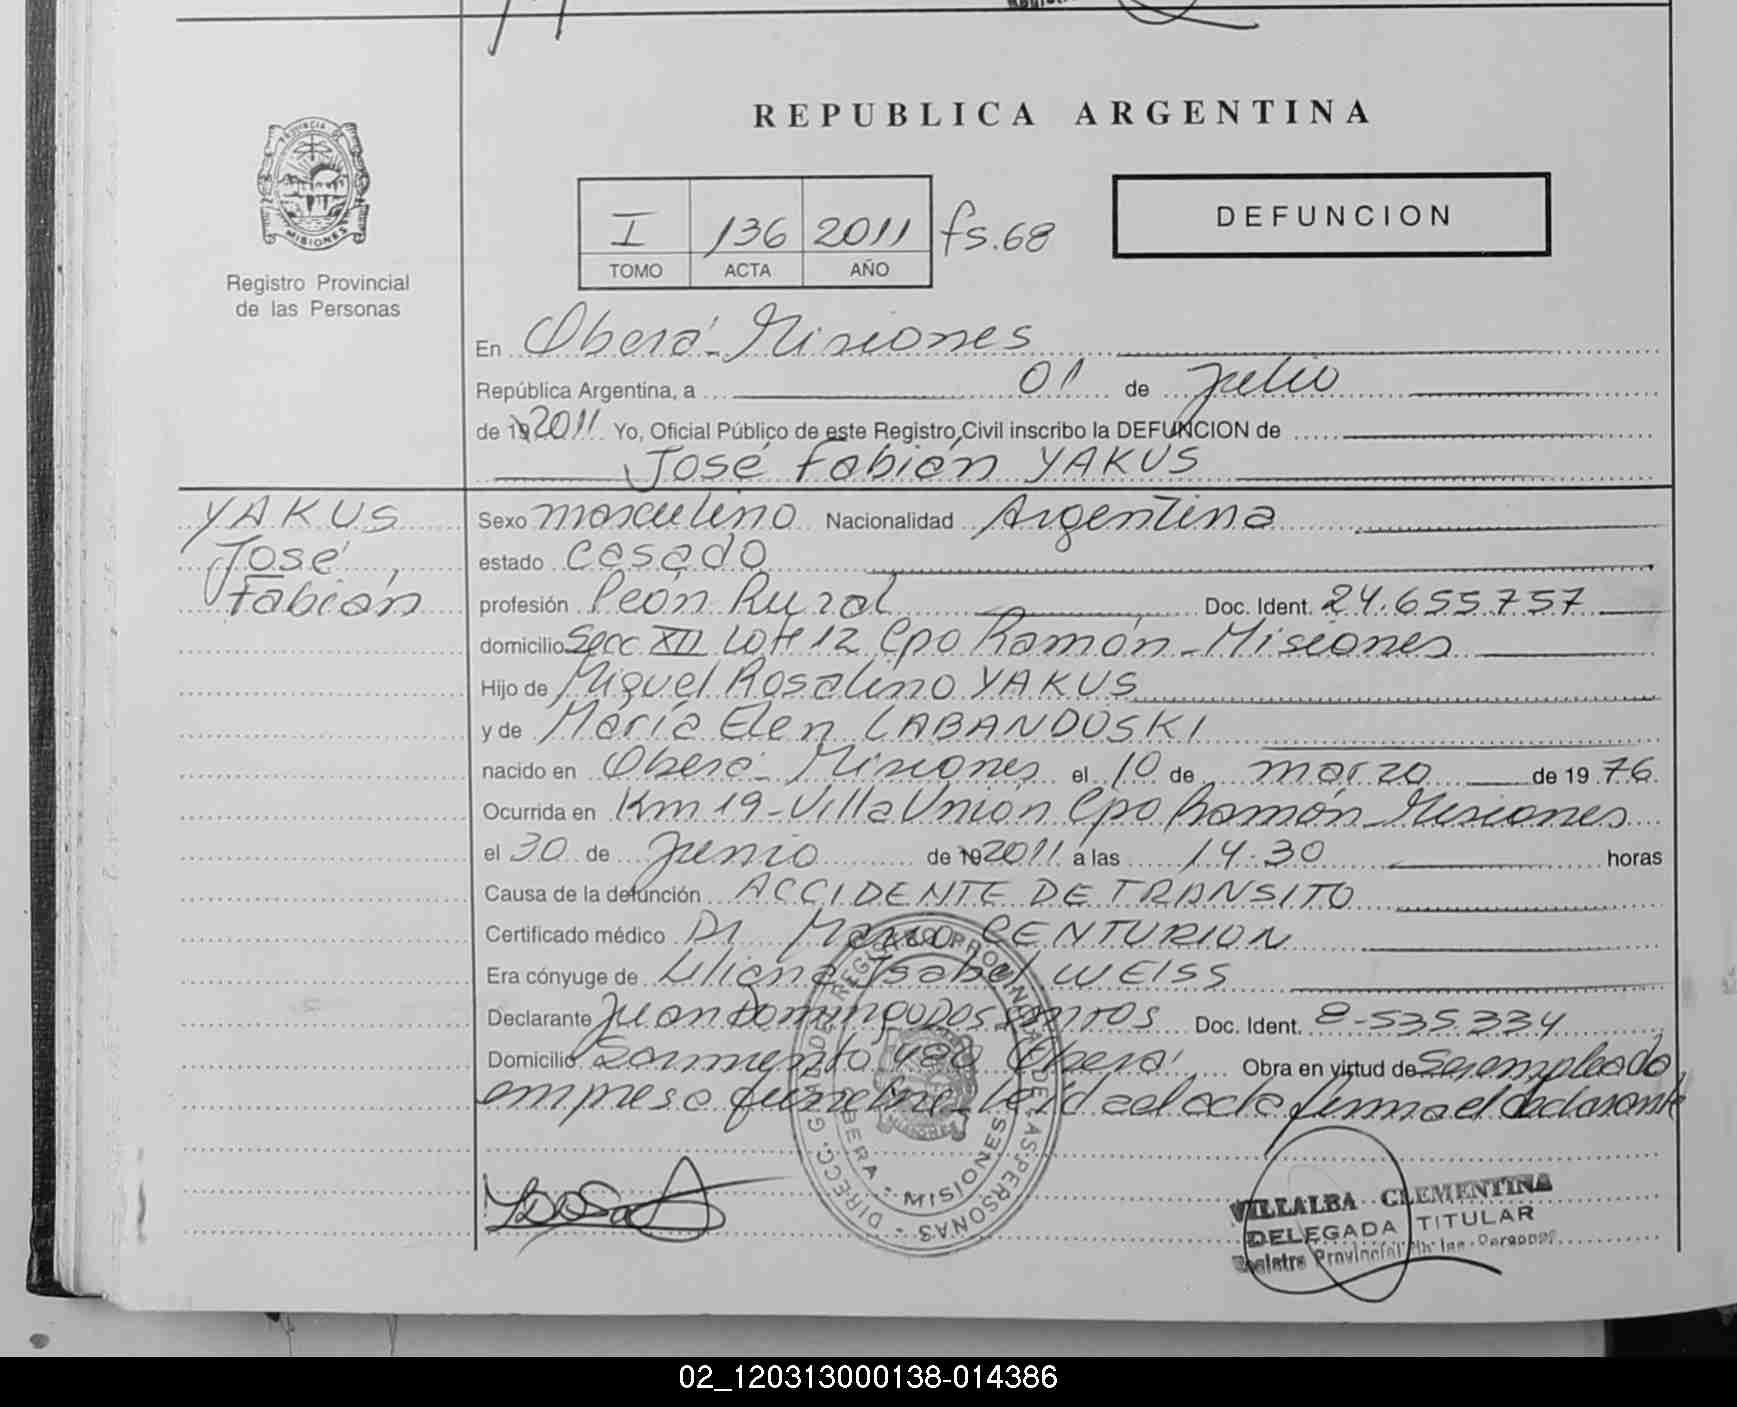 REPUBLICA ARGENTINA
PROVINCIA DE MISIONES
Registro Provincial
de las Personas
I 136 2011 fs.68
TOMO ACTA AÑO
DEFUNCION
En Oberá - Misiones
República Argentina, a 01 de Julio
de 19 2011 Yo, Oficial Público de este Registro Civil inscribo la DEFUNCION de
José Fabián YAKUS
YAKUS
José
Fabián
Sexo masculino Nacionalidad Argentina
estado casado
profesión Peón Rural Doc. Ident. 24.655.757
domicilio Secc XII Lote 12 Cpo Ramón - Misiones
Hijo de Miguel Rosalino YAKUS
y de María Elen LABANDOSKI
nacido en Oberá - Misiones el 10 de marzo de 19 76
Ocurrida en Km 19 - Villa Unión Cpo Ramón - Misiones
el 30 de Junio de 19 2011 a las 14.30 horas
Causa de la defunción ACCIDENTE DE TRANSITO
Certificado médico Dr Mario CENTURION
Era cónyuge de Liliana Isabel WEISS
Declarante Juan Domingo DOS SANTOS Doc. Ident. 8-535334
Domicilio Sarmiento 480 Oberá Obra en virtud de Ser empleado
empresa fúnebre - Leída el acta firma el declarante
DIRECC. GRAL. DE REGISTRO PROVINCIAL DE LAS PERSONAS
OBERA - MISIONES
VILLALBA CLEMENTINA
DELEGADA TITULAR
Registro Provincial de las Personas
02_120313000138-014386